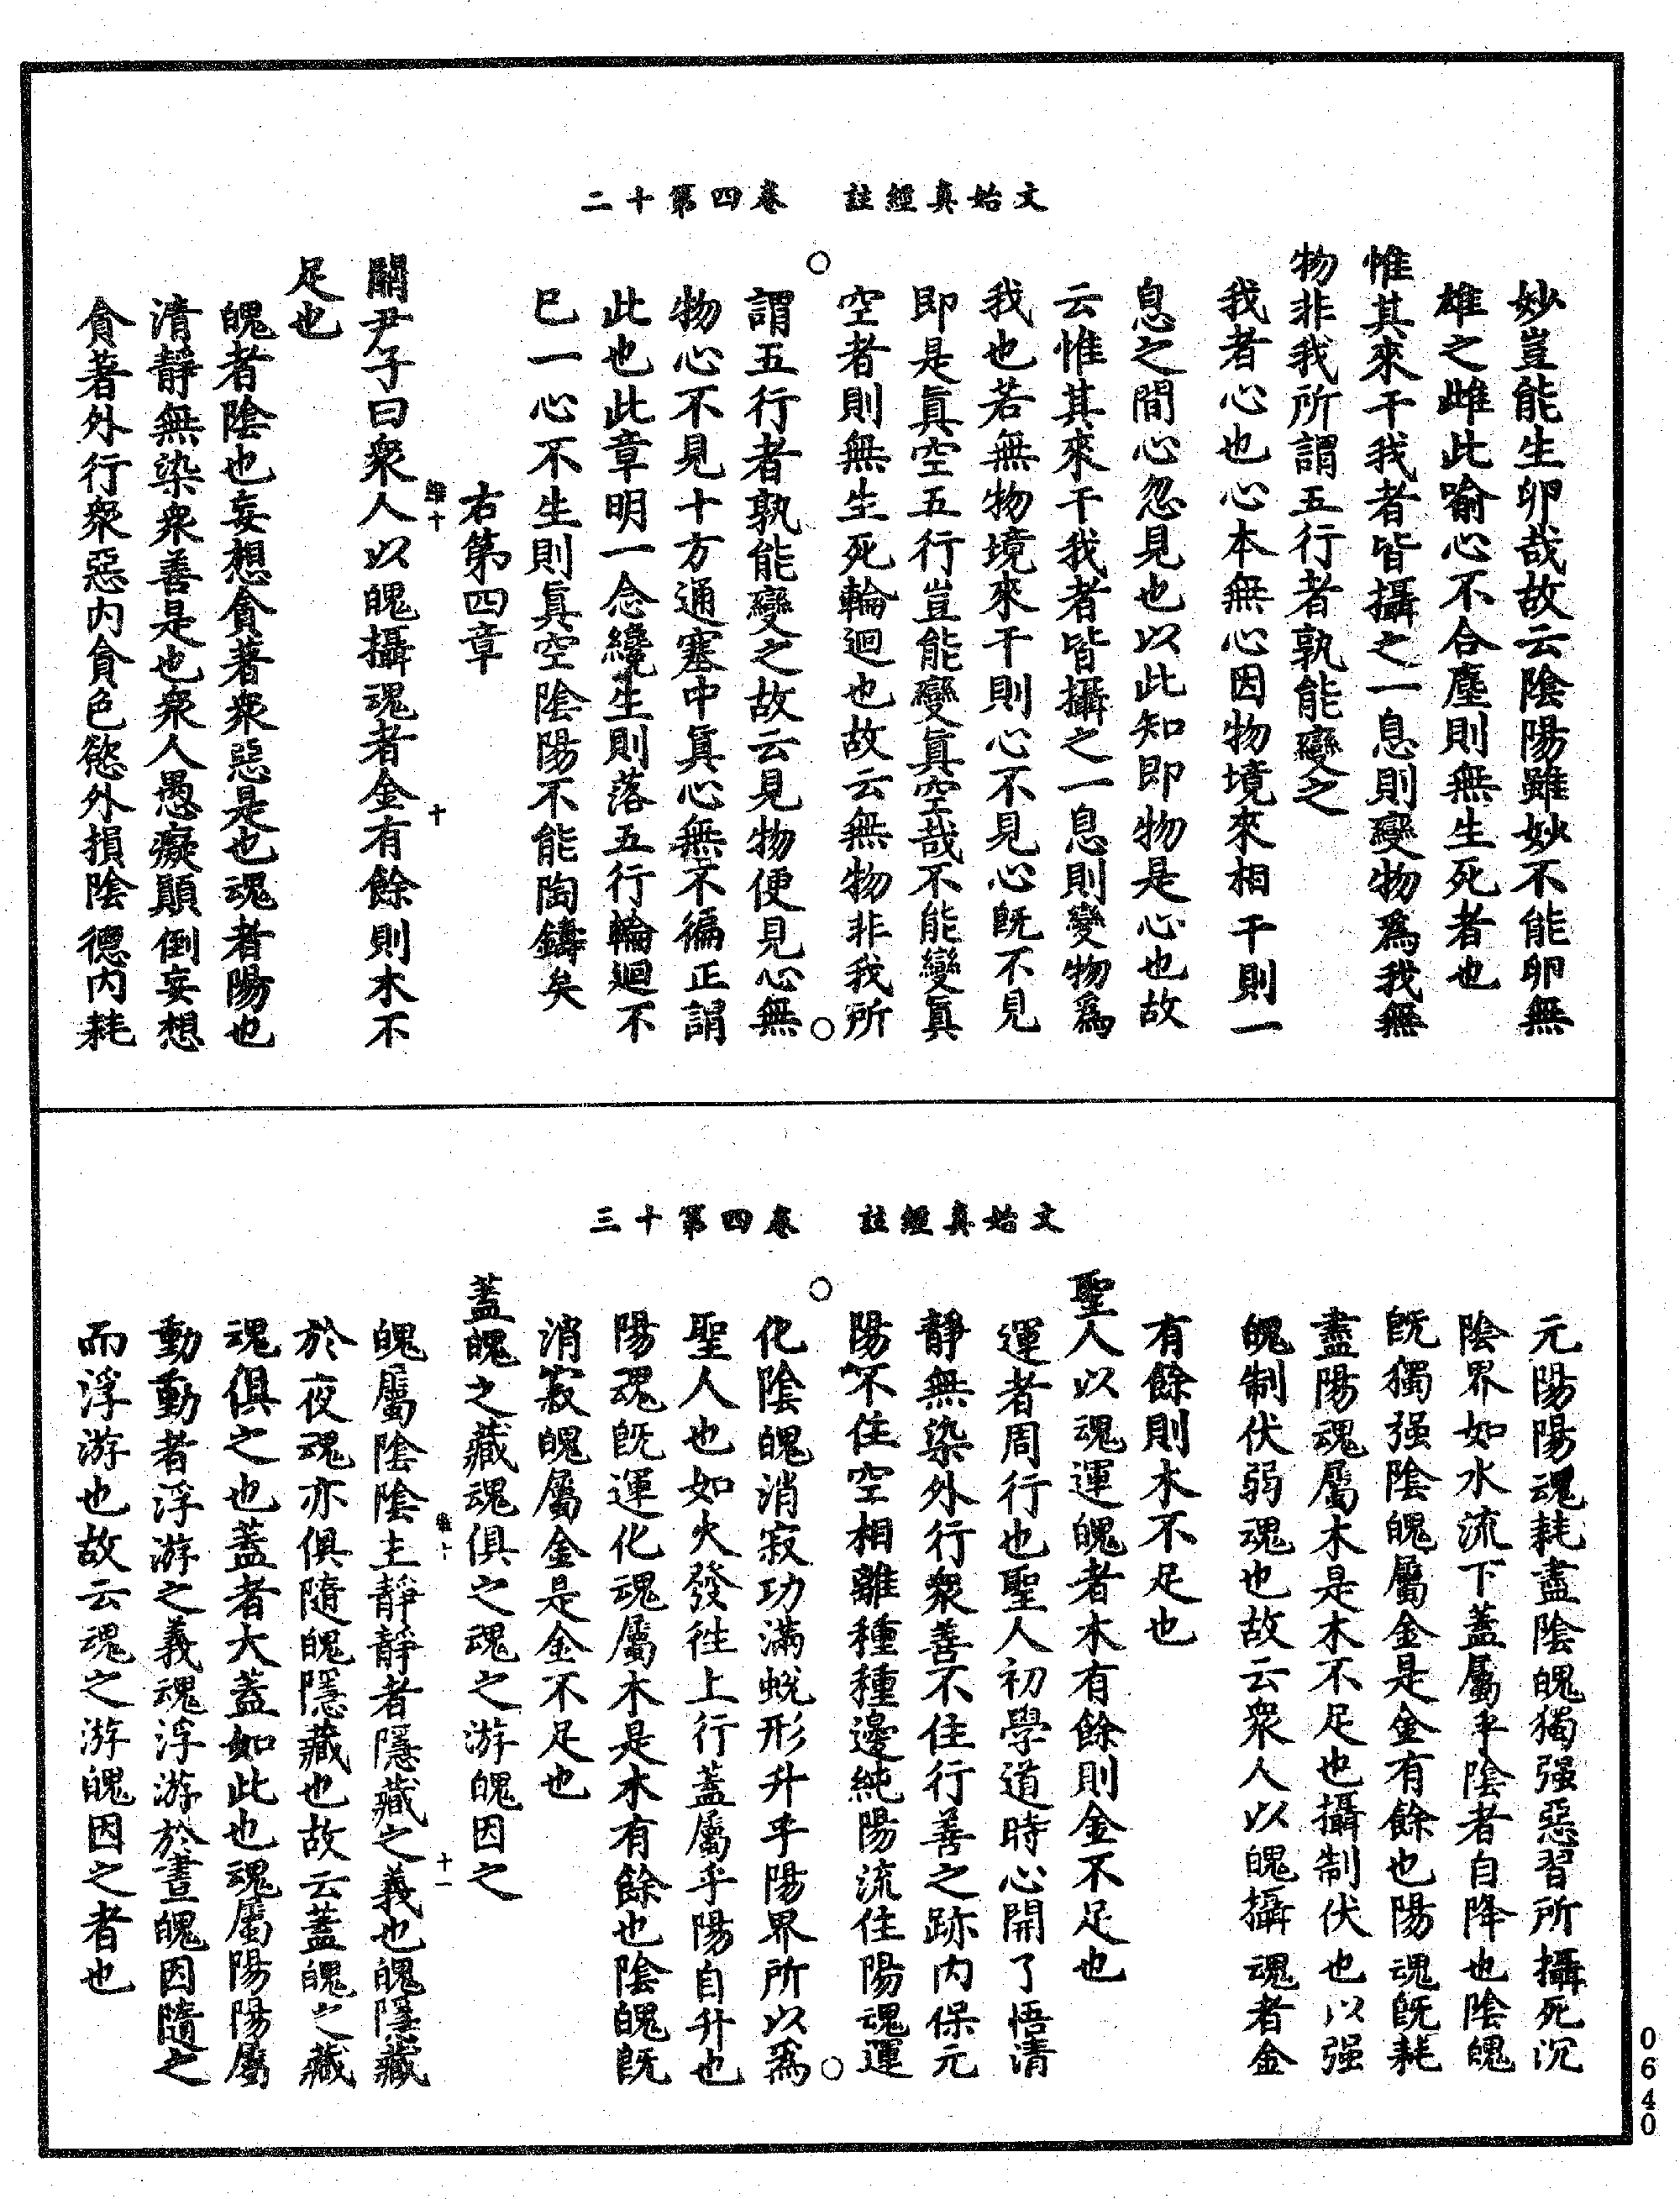 文始真經註　卷四第十二
妙豈能生卵哉故云陰陽雖妙不能卵無
雄之雌此喻心不合塵則無生死者也
惟其來干我者皆攝之一息則變物爲我無
物非我所謂五行者孰能變之
我者心也心本無心因物境來相干則一
息之間心忽見也以此知即物是心也故
云惟其來干我者皆攝之一息則變物爲
我也若無物境來干則心不見心既不見
即是眞空五行豈能變眞空哉不能變眞
空者則無生死輪迴也故云無物非我所
謂五行者孰能變之故云見物便見心無
物心不見十方通塞中眞心無不徧正謂
此也此章明一念纔生則落五行輪迴不
已一心不生則眞空陰陽不能陶鑄矣
右第四章
關尹子曰衆人以魄攝魂者金有餘則木不
足也
魄者陰也妄想貪著衆惡是也魂者陽也
清靜無染衆善是也衆人愚癡顚倒妄想
貪著外行衆惡內貪色慾外損陰德內耗
文始真經註　卷四第十三
元陽陽魂耗盡陰魄獨强惡習所攝死沉
陰界如水流下蓋屬乎陰者自降也陰魄
既獨强陰魄屬金是金有餘也陽魂既耗
盡陽魂屬木是木不足也攝制伏也以强
魄制伏弱魂也故云衆人以魄攝魂者金
有餘則木不足也
聖人以魂運魄者木有餘則金不足也
運者周行也聖人初學道時心開了悟清
靜無染外行衆善不住行善之跡內保元
陽不住空相離種種邊純陽流住陽魂運
化陰魄消寂功滿蛻形升乎陽界所以爲
聖人也如火發徃上行蓋屬乎陽自升也
陽魂既運化魂屬木是木有餘也陰魄既
消寂魄屬金是金不足也
蓋魄之藏魂俱之魂之游魄因之
魄屬陰陰主靜靜者隱藏之義也魄隱藏
於夜魂亦俱隨魄隱藏也故云蓋魄之藏
魂俱之也蓋者大蓋如此也魂屬陽陽屬
動動者浮游之義魂浮游於晝魄因隨之
而浮游也故云魂之游魄因之者也
0640